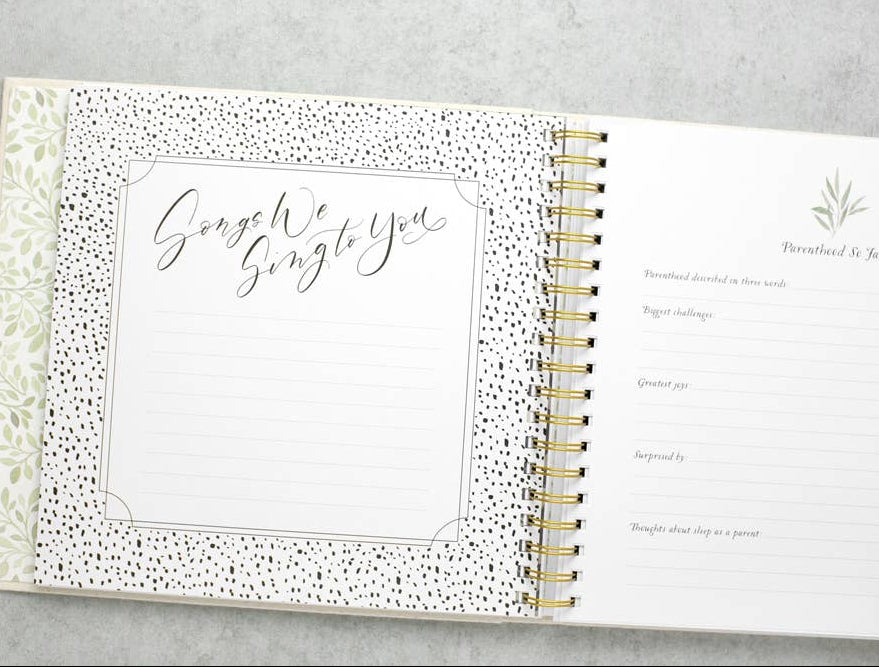 Songs We
Sing to You
Parenthood So
Parenthood described in three words
Biggest challenges:
Greatest joys:
Surprised by:
Thoughts about sleep as a parent: